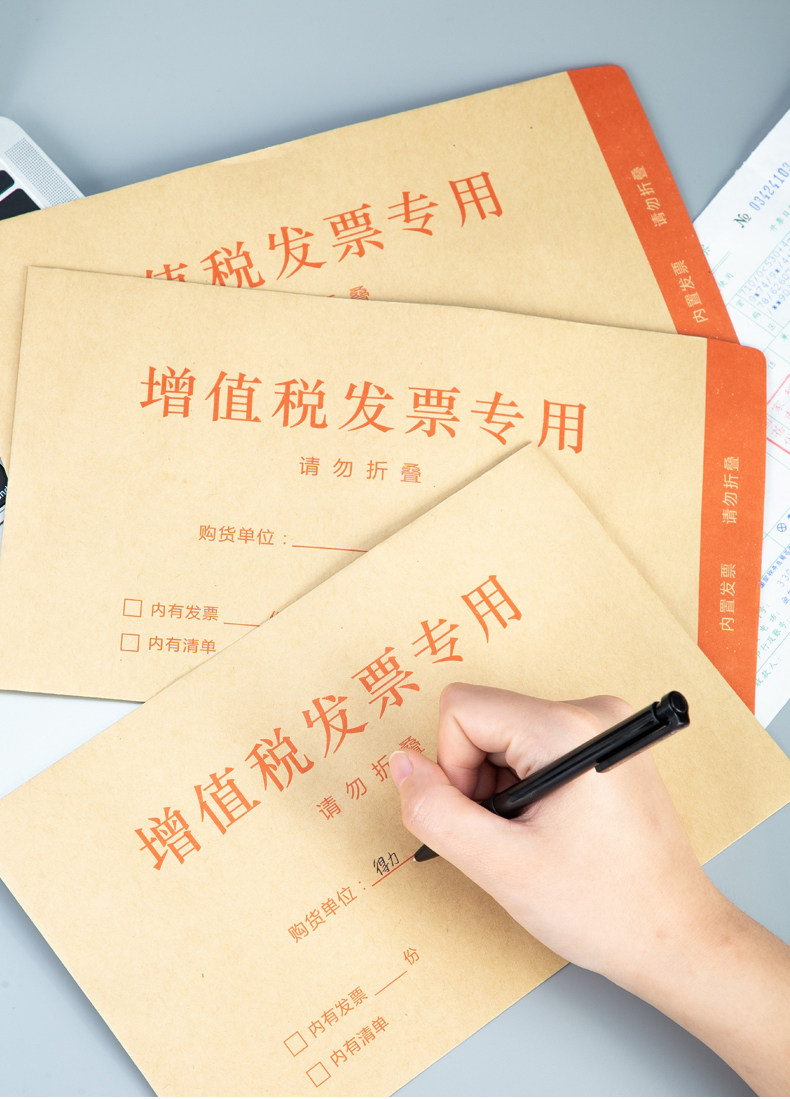 值税发票专用
请勿折叠
内置发票
№ 03424103
增值税发票专用
请勿折叠
购货单位：
内有发票
份
内有清单
请勿折叠
内置发票
增值税发票专用
请勿折叠
购货单位：得力
内有发票 份
内有清单